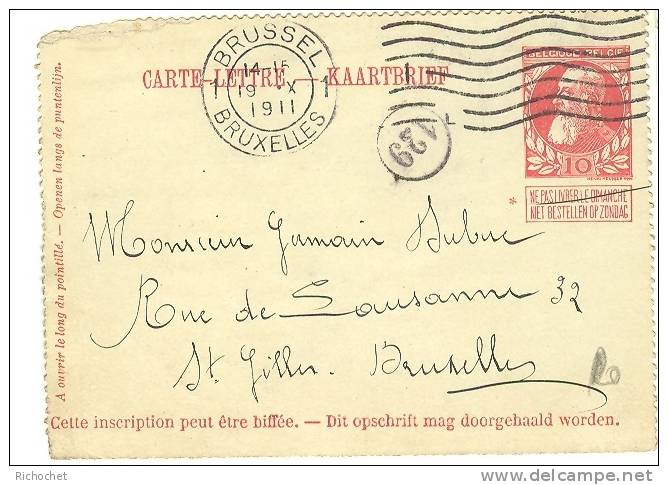 BRUSSEL
14-15
1 19 IX 1
1911
BRUXELLES
CARTE-LETTRE. — KAARTBRIEF
BELGIQUE·BELGIË
10
129
L
* NE PAS LIVRER LE DIMANCHE
NIET BESTELLEN OP ZONDAG
A ouvrir le long du pointillé. — Openen langs de puntenlijn.
Monsieur Germain Dubuc
Rue de Lausanne 32
St. Gilles. Bruxelles
Cette inscription peut être biffée. — Dit opschrift mag doorgehaald worden.
Richochet
www.delcampe.net